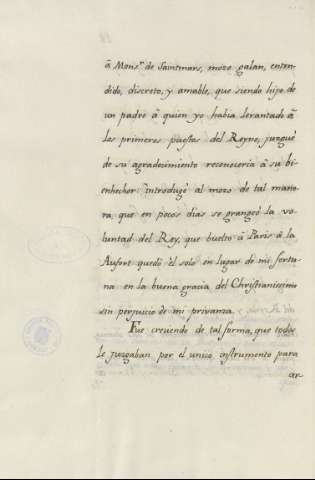 â Mons.r de Saintmars, mozo galan, enten-
dido, discreto, y amable, que siendo hijo de
un padre â quien yo habia levantado â
los primeros puestos del Reyno, juzgué
de su agradecimiento reconoceria â su bi-
enhechor: introdugé al mozo de tal mane-
ra, que en pocos dias se grangeó la vo-
luntad del Rey, que buelto â Paris â la
quedó él solo en lugar de mi fortu-
na en la buena gracia del Christianissimo
sin perjuicio de mi privanza.
Fue creciendo de tal forma, que todos
le juzgaban por el unico instrumento para
ar